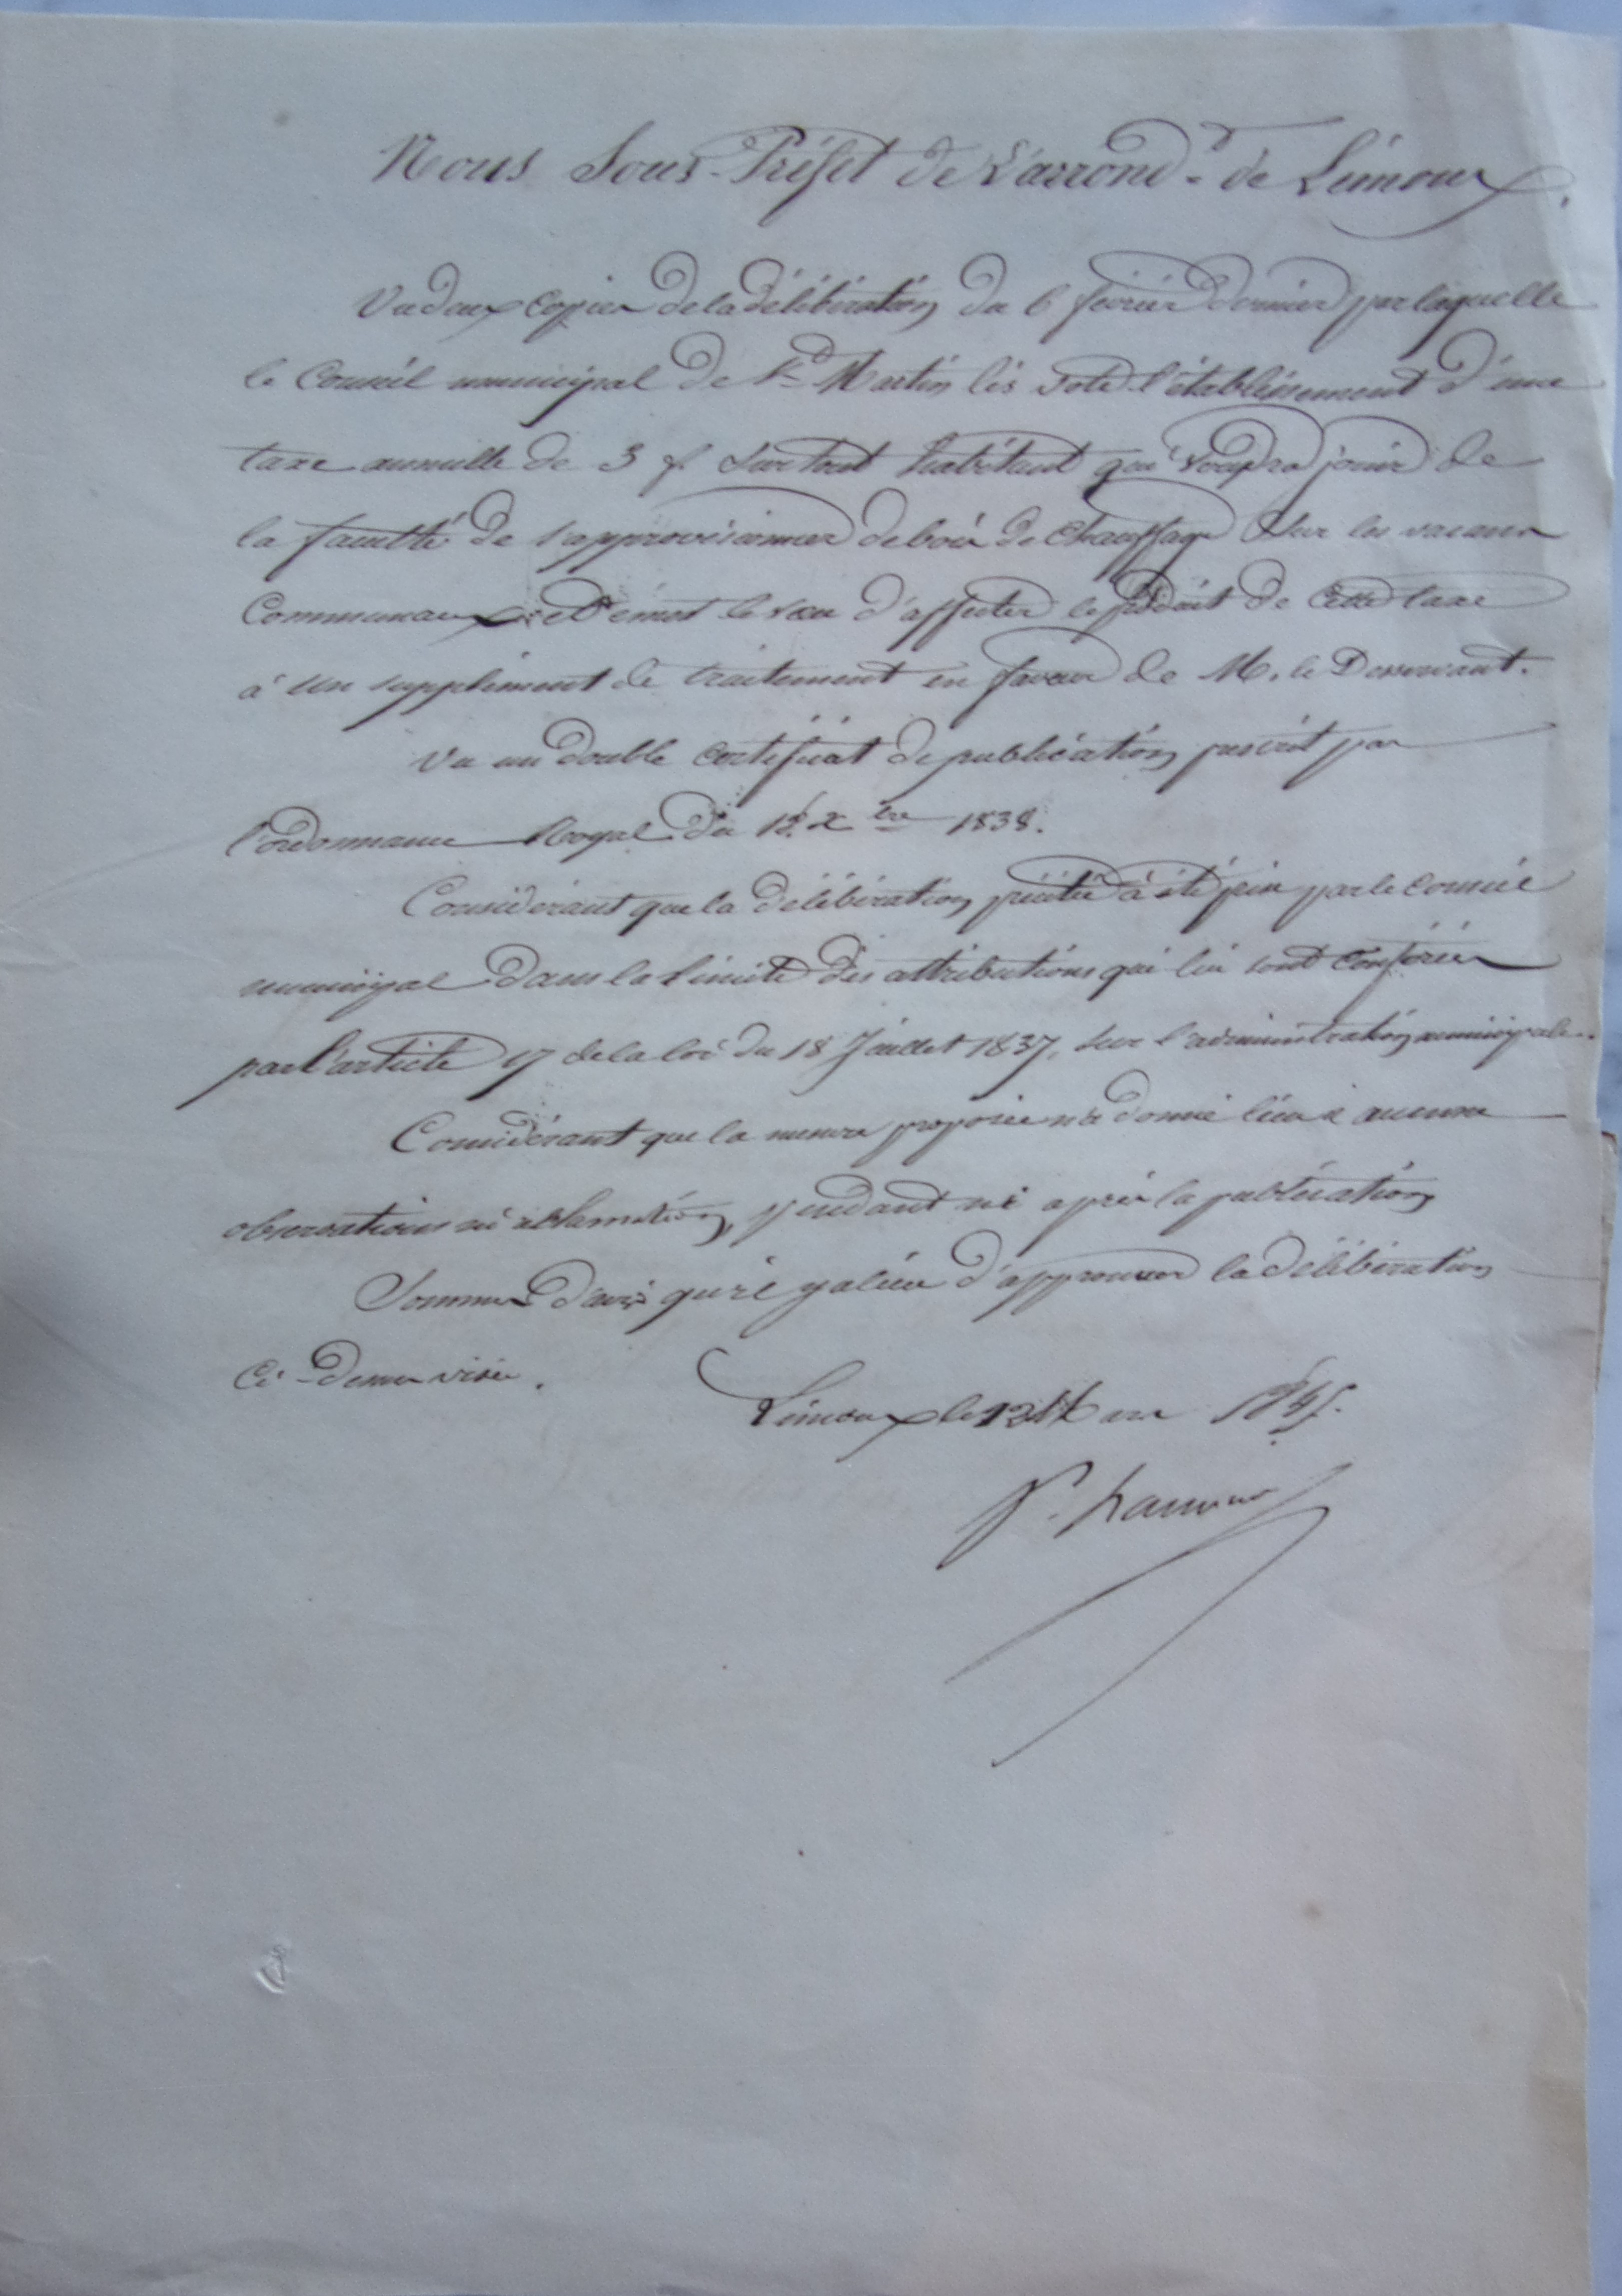 Nous Sous-Préfet de L'arrond.t de Limoux.
Vu deux copies de la délibération du 6 février dernier par laquelle
le Conseil municipal de St Martin lis vote l'établissement d'une
taxe annuelle de 3 f. sur tout habitant qui voudra jouir de
la faculté de s'approvisionner de bois de chauffage sur les vacans
Communaux et émet le vœu d'affecter le produit de cette taxe
à un supplément de traitement en faveur de M. le Desservant.
Vu un double certificat de publication prescrit par
l'ordonnance Royal du 18. Xbre 1838.
Considérant que la délibération précitée à été prise par le Conseil
municipal dans la limite des attributions qui lui sont conférées
par l'article 17 de la loi du 18 Juillet 1837, sur l'administration municipale.
Considérant que la mesure proposée n'a donné lieu à aucune
observations ni réclamation, pendant ni après la publication
Sommes d'avis qu'il y a lieu d'approuver la délibération
Ci-dessus visée.
Limoux le 12 Mars 1845.